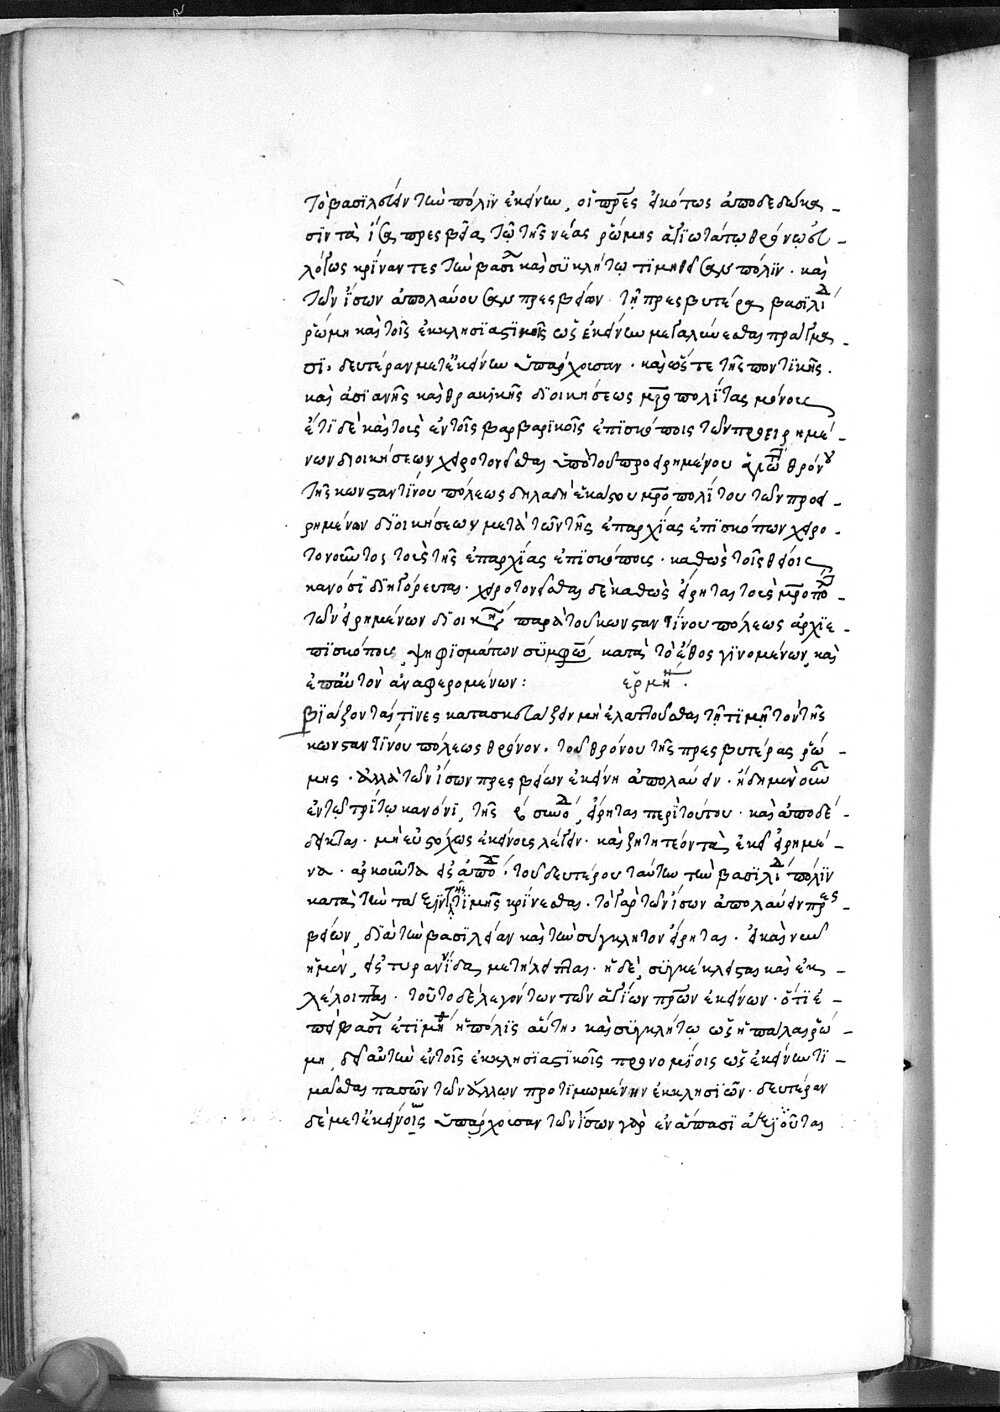 τὸ βασιλεύειν τὴν πόλιν ἐκείνην, οἱ πρες εἰκότως ἀποδεδώκα-
σιν τὰ ἴσα πρεσβεῖα τῷ τῆς νέας ῥώμης ἁγιωτάτῳ θρόνῳ εὐ-
λόγως κρίναντες τὴν βασι καὶ συγκλήτῳ τιμηθεῖσαν πόλιν. καὶ
τῶν ἴσων ἀπολαύουσαν πρεσβείων τῇ πρεσβυτέρα βασιλι
ῥώμη καὶ τοῖς ἐκκλησιαστικοῖς ὡς ἐκείνην μεγαλύνεσθαι πράγμα-
σι, δευτέραν μετ' ἐκείνην ὑπάρχουσαν. καὶ ὥστε τῆς ποντικῆς.
καὶ ἀσιανῆς καὶ θρακικῆς διοικήσεως μροπολίτας μόνους
ἔτι δὲ καὶ τοὺς ἐν τοῖς βαρβαρικοῖς ἐπισκόπους τῶν προειρημέ-
νων διοικήσεων χειροτονεῖσθαι ὑπὸ τοῦ προειρημένου ἁγιω θρόνου
τῆς κωνσταντίνου πόλεως δηλαδὴ ἑκάστου μροπολίτου τῶν προει-
ρημένων διοικήσεων μετὰ τῶν τῆς ἐπαρχίας ἐπισκόπων χειρο-
τονοῦντος τοὺς τῆς ἐπαρχίας ἐπισκόπους. καθὼς τοῖς θείοις
κανόσι διηγόρευται. χειροτονεῖσθαι δὲ καθὼς εἴρηται τοὺς μροπο-
τῶν εἰρημένων διοικη παρὰ τοῦ κωνσταντίνου πόλεως ἀρχιε-
πισκόπου, ψηφισμάτων συμφω κατὰ τὸ ἔθος γινομένων, καὶ
ἐπ' αὐτὸν ἀναφερομένων: ἑρμη.
βιάζονταί τινες κατασκευάζειν μὴ ἐλαττοῦσθαι τῇ τιμῇ τὸν τῆς
κωνσταντίνου πόλεως θρόνον. τοῦ θρόνου τῆς πρεσβυτέρας ῥώ-
μης. ἀλλὰ τῶν ἴσων πρεσβείων ἐκείνη ἀπολαύειν. ἤδη μὲν οὖν
ἐν τῷ τρίτῳ κανόνι, τῆς συνο, εἴρηται περὶ τούτου. καὶ ἀποδέ-
δεικται. μὴ εὐστόχως ἐκείνοις λέγειν. καὶ ζητητέον τὰ ἐκεῖ εἰρημέ-
να. ἀρκοῦντα εἰς ἀπο. τοῦ δευτέρου ταύτην τὴν βασιλι πόλιν
κατὰ τὴν τάξιν τῆς τιμῆς κρίνεσθαι. τὸ γὰρ τῶν ἴσων ἀπολαύειν πρες-
βείων, διὰ τὴν βασιλείαν καὶ τὴν σύγκλητον εἴρηται. εἰ καὶ νῦν
ἡ μὲν, εἰς τυραννίδα μετήλειπται. ἡ δὲ, συγκέκλεισται καὶ ἐκ-
λέλοιπται. τοῦτο δὲ λεγόντων τῶν ἁγίων πρων ἐκείνων. ὅτι ἐ-
πεὶ βασι ἐτιμη ἡ πόλις αὕτη, καὶ συγκλήτῳ ὡς ἡ παλαι ῥώ-
μη, δεῖ αὐτὴν ἐν τοῖς ἐκκλησιαστικοῖς προνομίοις ὡς ἐκείνην τι-
μᾶσθαι πασῶν τῶν ἄλλων προτιμωμένην ἐκκλησιῶν. δευτέραν
δὲ μετ' ἐκείνοις ὑπάρχουσαν τῶν ἴσων γὰρ ἐν ἅπασι ἀξιοῦται